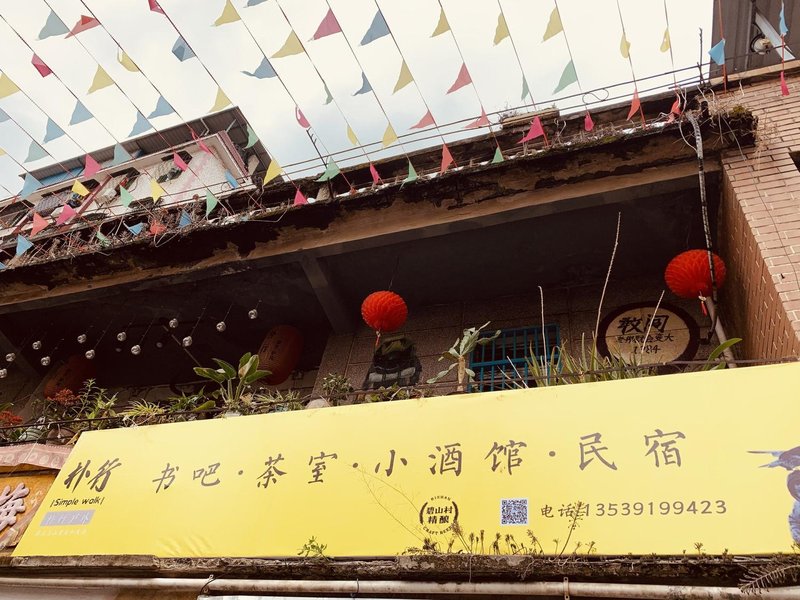 敢问
1984
朴行
|Simple walk|
书吧·茶室·小酒馆·民宿
碧山村
精酿
CRAFT BEER
电话:13539199423